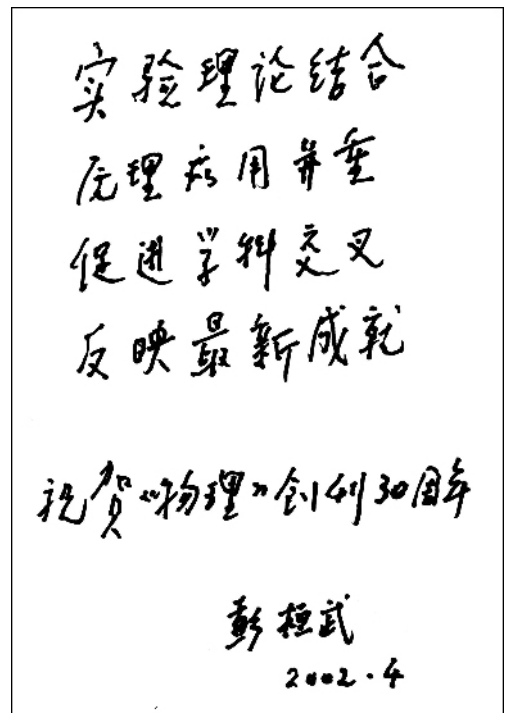 实验理论结合
原理应用并重
促进学科交叉
反映最新成就
祝贺《物理》创刊30周年
彭桓武
2002.4